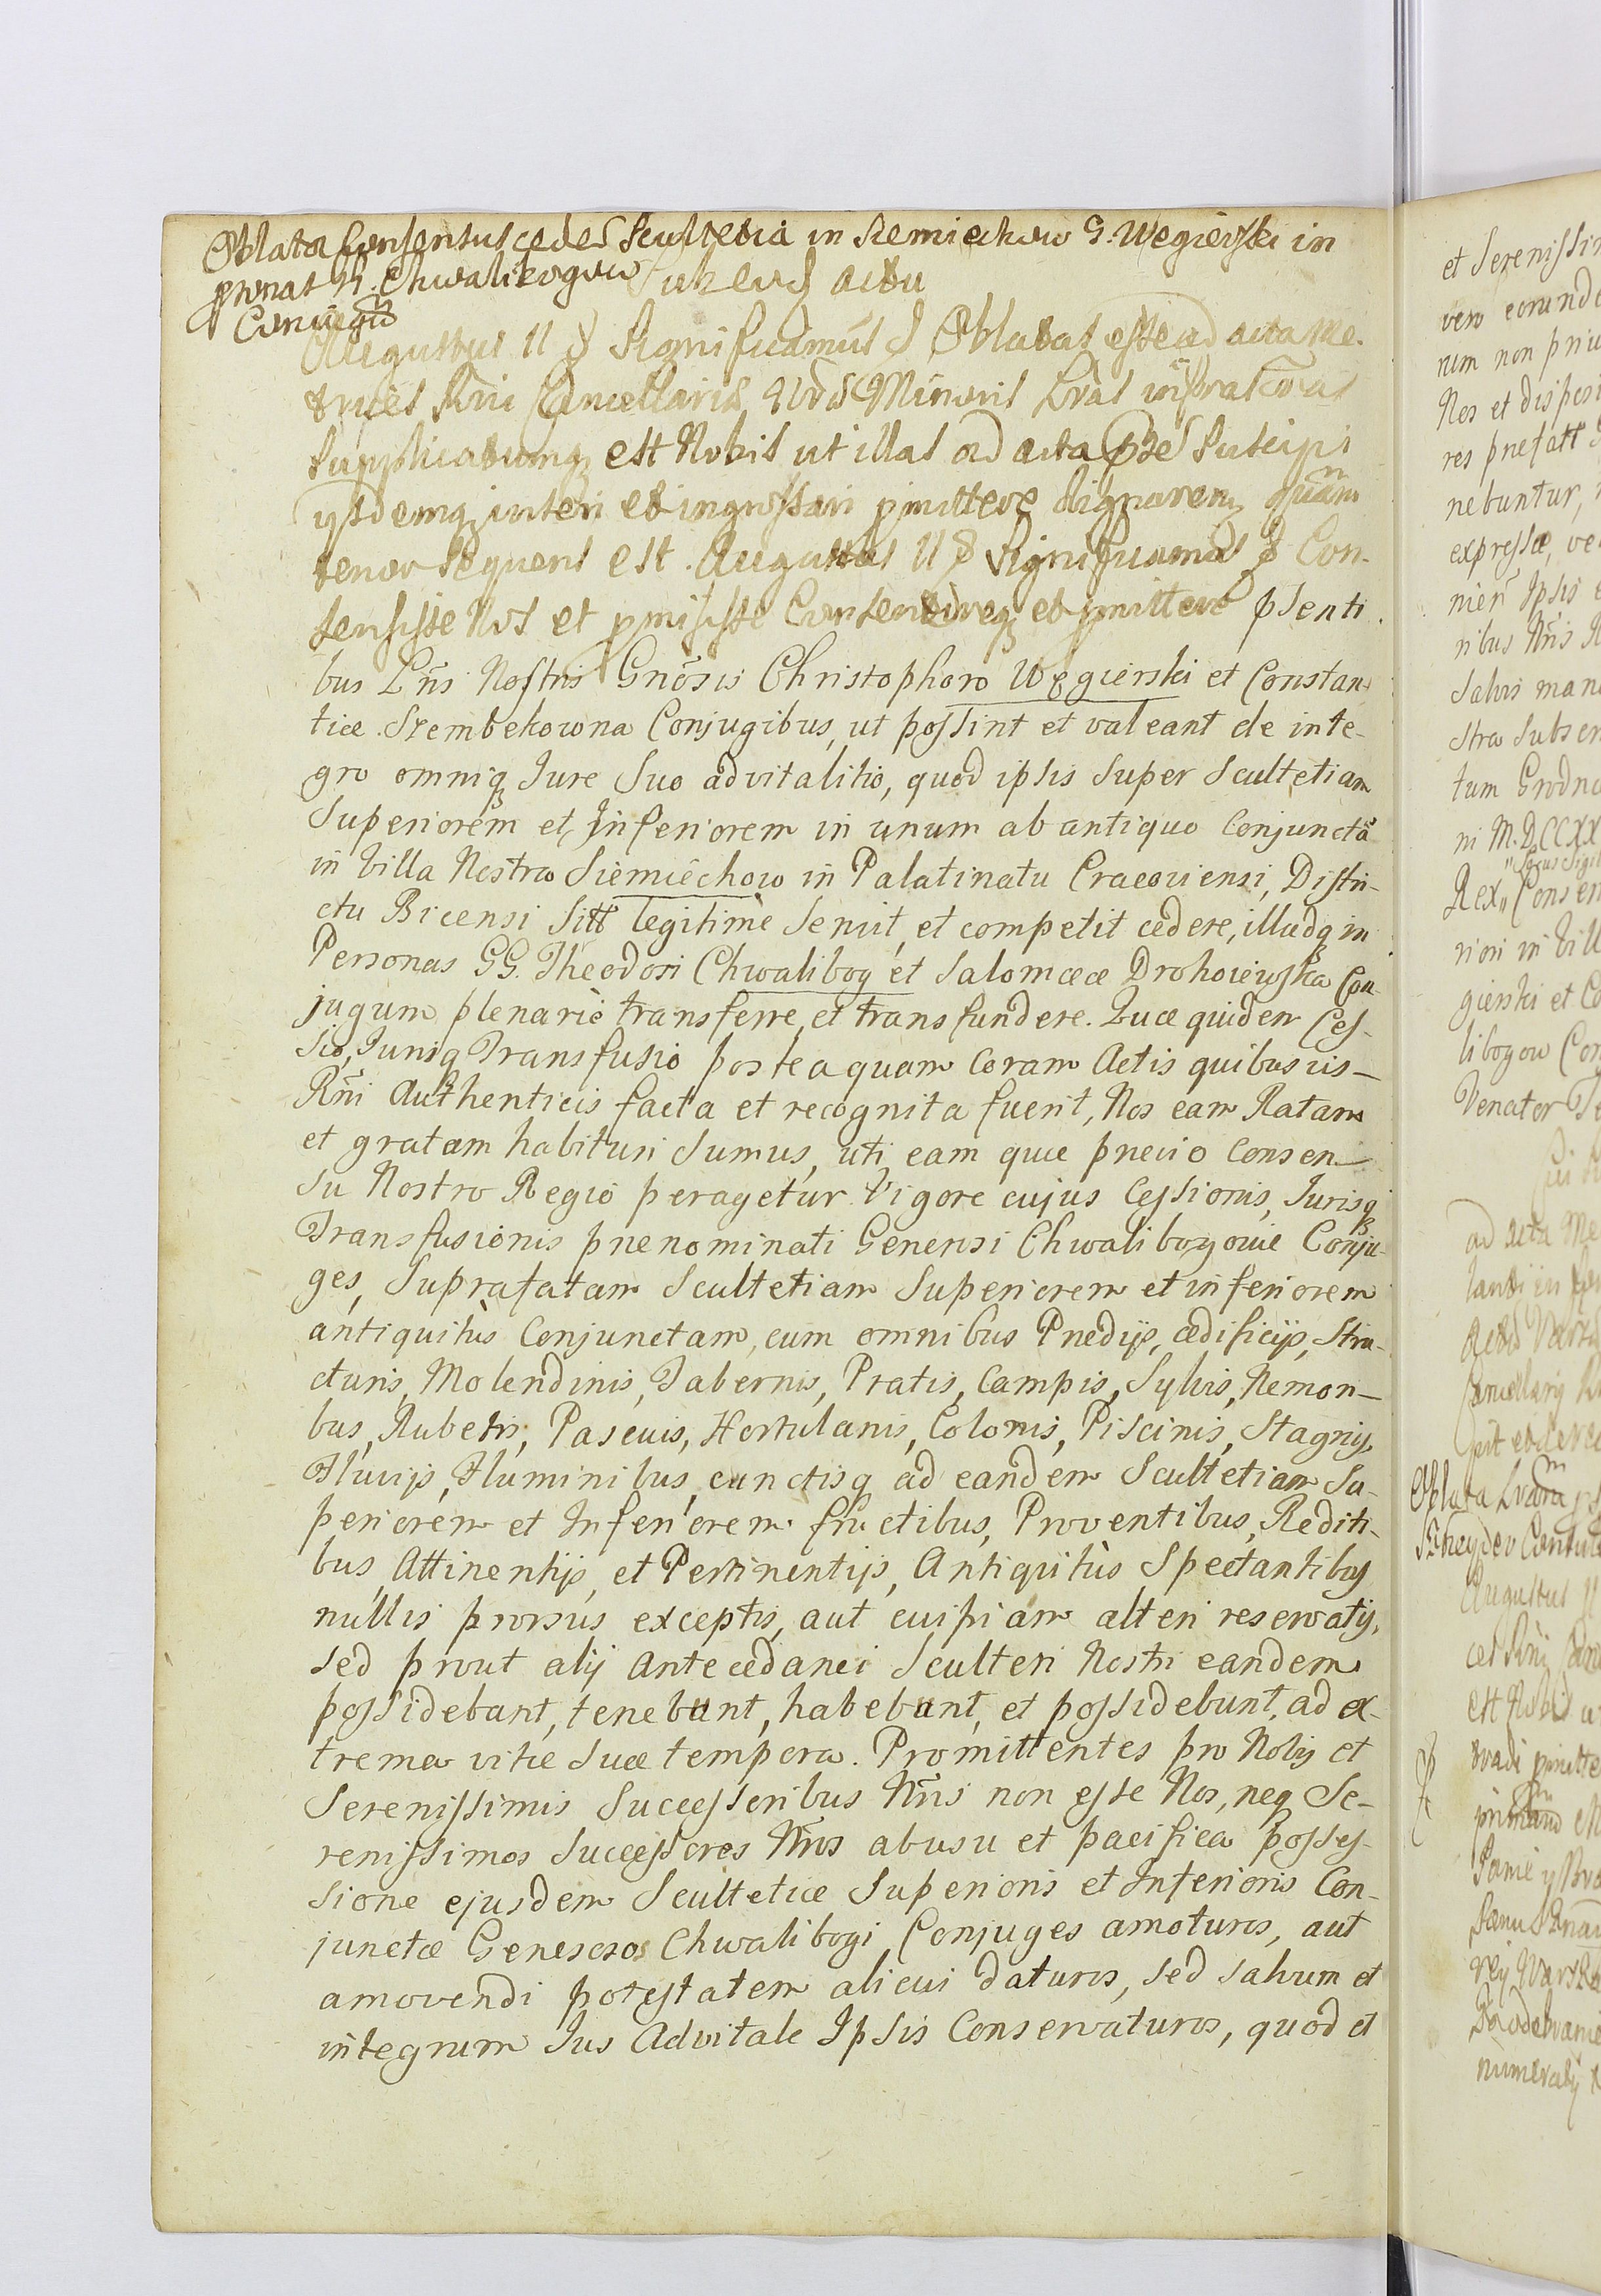 Oblata Consensus cedeñ Scultetia in Siemiechow G. Węgierski in
psonas G. Chwalibogow sub eod. actu
Coniugũ
Augustus II Significamus Oblatas esse ad acta Me-
trices Rñi Cancellariæ Minoris Lras infrascriptas
Supplicatumq est Nobis ut illas ad acta Suscipi
ijsdemq inseri et ingrossari pmittere dignaremq quarũ
tenor sequens est. Augustus II Significamus Con-
sensisse Nos et pmisisse Consentireq et pmittere psenti
bus Lris Nostris Gnosis Christophoro Węgierski et Constan-
tiæ Szembekowna Conjugibus, ut possint et valeant de inte-
gro omniq Jure Suo advitalitio, quod ipsis super Scultetiam
Superiorem et Inferiorem in unum ab antiquo Conjunctã
in Villa Nostra Siemiechow in Palatinatu Cracoviensi, Distri-
ctu Biecensi sitt legitime servit, et competit cedere, illudq in
Personas GG. Theodori Chwalibog et Salomeæ Drohoiewska Con-
jugum plenarie transferre, et transfundere. Quæ quidem Ces-
sio, Jurisq Transfusio posteaquam Coram Actis quibusvis
Rñi Authenticis facta et recognita fuerit, Nos eam Ratam
et gratam habituri Sumus, uti eam quæ prævio Consen-
su Nostro Regio peragetur. Vigore cujus Cessionis, Jurisq
Transfusionis prænominati Generosi Chwalibogowie Conju-
ges, Suprafatam Scultetiam Superiorem et inferiorem
antiquitus Conjunctam, cum omnibus Prædijs, ædificijs, Stru-
cturis, Molendinis, Tabernis, Pratis, Campis, Sylvis, Nemori-
bus, Rubetis, Pascuis, Hortulanis, Colonis, Piscinis, Stagnis,
Fluvijs, Fluminibus, cunctisq ad eandem Scultetiam Su-
periorem et Inferiorem fructibus, Proventibus, Rediti-
bus Attinentijs, et Pertinentijs, Antiquitùs Spectantibus
nullis prorsus exceptis, aut cuipiam alteri reservatis,
sed prout alij Antecedanei Sculteti Nostri eandem
possidebant, tenebant, habebant, et possidebunt, ad ex-
trema vitæ suæ tempora. Promittentes pro Nobis et
Serenissimis Successoribus Nris non esse Nos, neq Se-
renissimos Successores Nros ab usu et pacifica posses-
sione ejusdem Scultetiæ Superioris et Inferioris Con-
junctæ Generosos Chwalibogi Conjuges amoturos, aut
amovendi potestatem alicui daturos, sed salvum et
integrum Jus Advitale Ipsis Conservaturos, quod et
et Serenissi
vero eorund
rum non priu
Nos et disposi
res præfatt
nebuntur,
expressæ, ve
nien Ipsis
ribus Nris
Salvis man
stra Subscr
tum Grodn
ni M.DCCXX
Locus Sigil
Rex Consen
rioni in Vill
gierski et Co
libogow Con
Venator
ad acta Me
Oblata
Augustus II
cet Rñi Can
est Nobis u
numeraty